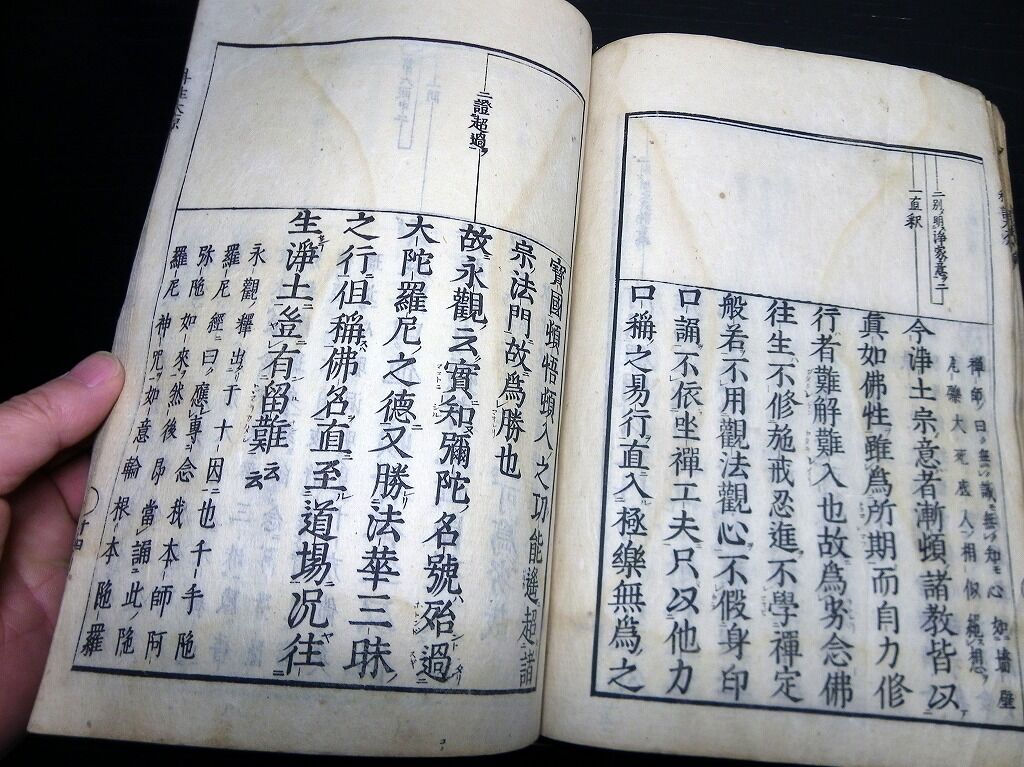 二別明淨家意二
一直釈
禪師曰無識無知心如墻壁
死人相似縄想
今淨土宗意者漸頓諸教皆以
眞如佛性雖爲所期而自力修
行者難解難入也故爲勞念佛
往生不修施戒忍進不學禪定
般若不用觀法觀心不假身印
口誦不依坐禪工夫只以他力
口稱之易行直入極樂無爲之
二證超過
寳國頓悟頓入之功能遙超諸
宗法門故爲勝也
故永觀云實知彌陀名號殆過
大陀羅尼之德又勝法華三昧
之行但稱佛名直至道場况往
生淨土豈有留難云云
永觀釋出于十因也千手陁
羅尼經曰應專念我本師阿
弥陁如來然後昂當誦此陁
羅尼神咒如意輪根本陁羅
十四